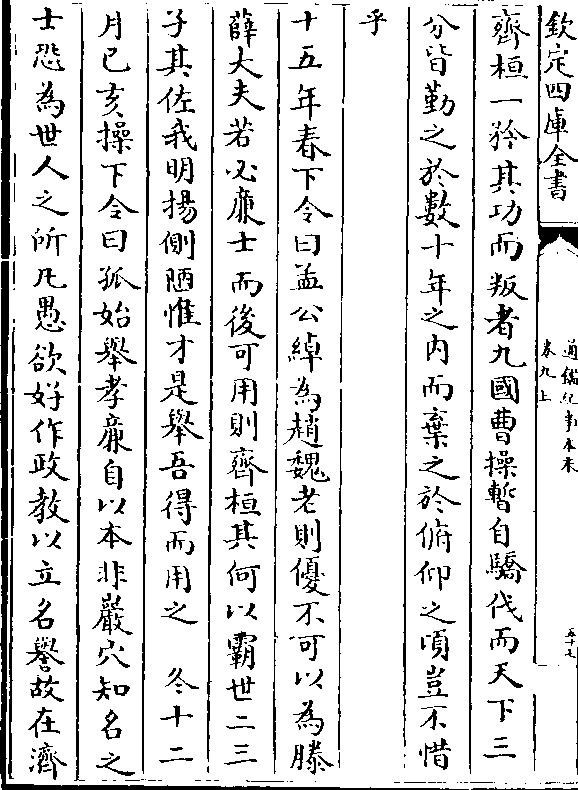 欽定四庫全書
通鑑紀事本末
卷九上
五十七
齊桓一矜其功而叛者九國曹操暫自驕伐而天下三
分皆勤之於數十年之內而棄之於俯仰之頃豈不惜
乎
十五年春下令曰孟公綽為趙魏老則優不可以為滕
薛大夫若必廉士而後可用則齊桓其何以霸世二三
子其佐我明揚側陋惟才是舉吾得而用之　冬十二
月已亥操下令曰孤始舉孝廉自以本非巖穴知名之
士恐為世人之所凡愚欲好作政教以立名譽故在濟